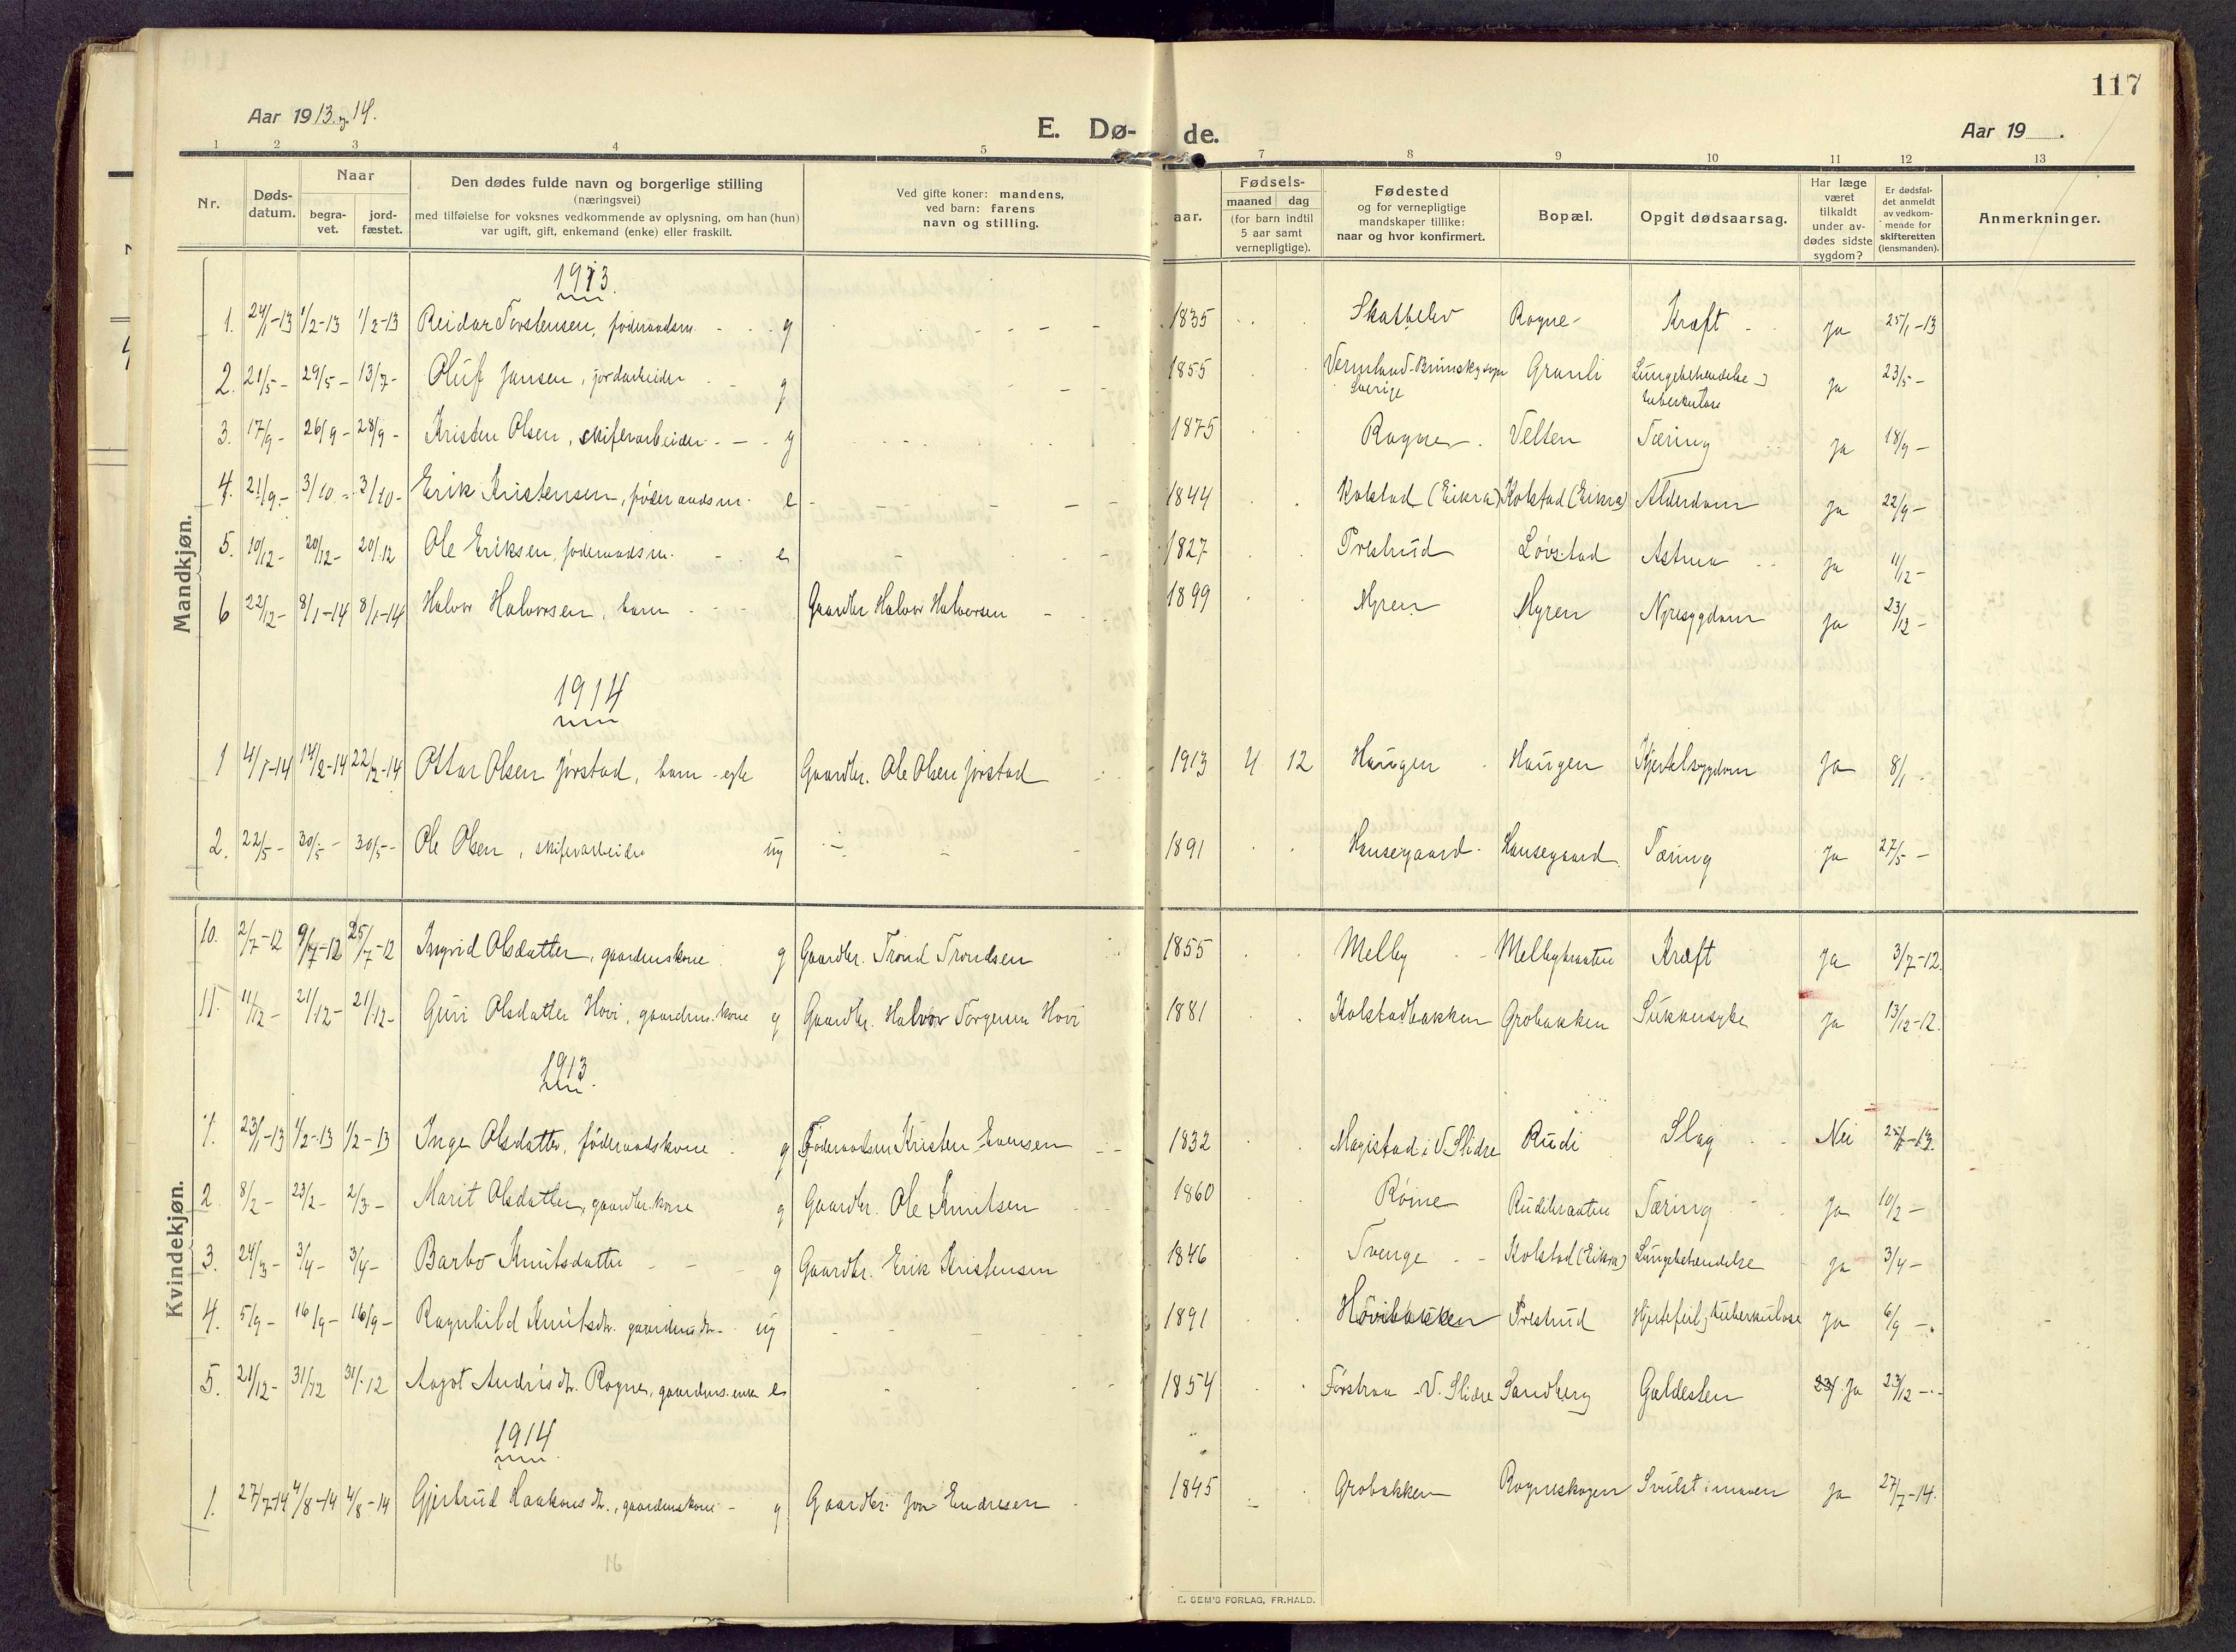 117
Aar 1913 og 14.
E. Dø-de.
Aar 19 .
1 2 3 4 5 7 8 9 10 11 12 13
Nr.
Døds-datum.
Naar
begra-vet.
jord-fæstet.
Den dødes fulde navn og borgerlige stilling
(næringsvei)
med tilføielse for voksnes vedkommende av oplysning, om han (hun)
var ugift, gift, enkemand (enke) eller fraskilt.
Ved gifte koner: mandens,
ved barn: farens
navn og stilling.
aar.
Fødsels-
maaned dag
(for barn indtil
5 aar samt
vernepligtige).
Fødested
og for vernepligtige
mandskaper tillike:
naar og hvor konfirmert.
Bopæl.
Opgit dødsaarsag.
Har læge
været
tilkaldt
under av-
dødes sidste
sygdom?
Er dødsfal-
det anmeldt
av vedkom-
mende for
skifteretten
(lensmanden).
Anmerkninger.
Mandkjøn.
1913.
1. 24/1-13 1/2-13 1/2-13 Reidar Torstensen, föderaadsm. g 1835 Rogne Kræft ja 25/1-13
2. 21/5- 29/5- 13/7- Oluf Jansen, jordarbeider g 1855 Vermland Sverige Granli Lungebetændelse tuberkulose ja 23/5-
3. 17/9- 26/9- 28/9- Kristen Olsen, skiferarbeider g 1875 Rogne Velten Tæring ja 18/9-
4. 21/9- 3/10- 3/10- Erik Kristensen, föderaadsm. e 1844 Kolstad (Eikra) Kolstad (Eikra) Alderdom ja 22/9-
5. 10/12- 20/12- 20/12 Ole Eriksen, föderaadsm. e 1827 Prestrud Lövstad Astma ja 11/12-
6 22/12- 8/1-14 8/1-14 Halvor Halvorsen, barn Gaardbr. Halvor Halvorsen 1899 Myren Myren Nyresygdom ja 23/12-
1914
1 4/1-14 14/2-14 22/2-14 Ottar Olsen Jörstad, barn - egte Gaardbr. Ole Olsen Jörstad 1913 4 12 Haugen Haugen Kjertelsygdom Ja 8/1
2. 22/5- 30/5- 30/5- Ole Olsen, skiferarbeider ug 1891 Hausegaard Hausegaard Tæring ja 27/5-
Kvindekjøn.
10. 2/7-12 9/7-12 25/7-12 Ingrid Olsdatter, gaardmskone g Gaardbr. Trond Trondsen 1855 Melby Melbybraaten Kræft Ja 3/7-12.
11. 11/12- 21/12- 21/12- Guri Olsdatter Hovi, gaardms.kone g Gaardbr. Halvor Torgersen Hovi 1881 Kolstadbakken Grobakken Sukkersyke ja 13/12-12.
1913.
1. 23/1-13 1/2-13 1/2-13 Inge Olsdatter, föderaadskone g Foderaadsm Kristen Evensen 1832 Magistad i V. Slidre Rudi Slag Nei 25/1-13.
2. 8/2- 23/2- 2/3- Marit Olsdatter, gaardbr.kone g Gaardbr. Ole Knutsen 1860 Röine Rudibraaten Tæring ja 10/2-
3. 24/3- 3/4- 3/4- Barbo Knutsdatter g Gaardbr. Erik Kristensen 1846 Tvenge Kolstad (Eikra) Lungebetændelse ja 3/4-
4. 5/9- 16/9- 16/9- Ragnhild Knutsdtr. gaardmdtr. ug 1891 Hövibakken Prestrud Hjertefeil, tuberkulose ja 6/9-
5. 21/12- 31/12 31/12 Aagot Andrisdtr. Rogne, gaardms.enke e 1854 V. Slidre Sandberg Galdesten Ja 23/12-
1914
1. 27/7-14 4/8-14 4/8-14 Gjertrud Haakonsdtr., gaardmskone g Gaardbr. Jon Endresen 1845 Grobakken Rogneskogen Svulst i maven ja 27/7-14.
E. SEM'S FORLAG, FR.HALD.